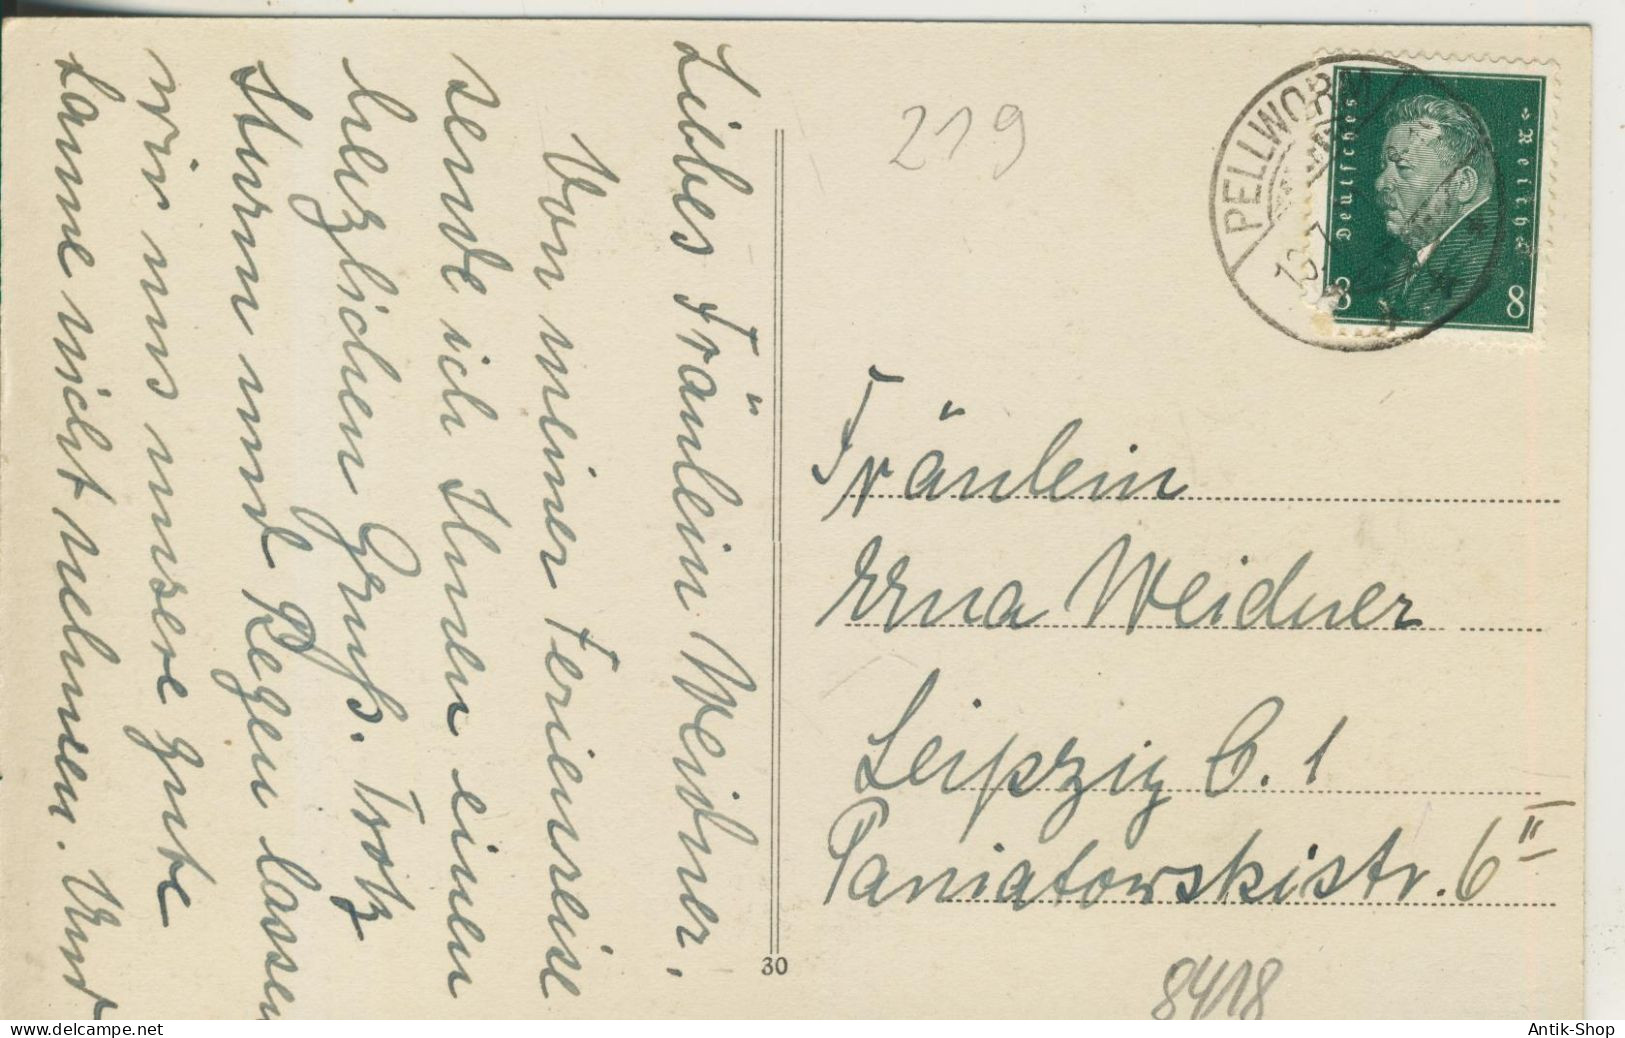 Liebes Fräulein Weidner.
Von meiner Ferienreise
sende ich Ihnen einen
herzlichen Gruß. Trotz
Sturm und Regen lassen
wir uns unsere gute
Laune nicht nehmen. Und
219
PELLWORM
Deutsches Reich
8 8
Fräulein
Erna Weidner
Leipzig C. 1
Paniatowskistr. 6 II
30
8418
delcampe.net
Antik-Shop